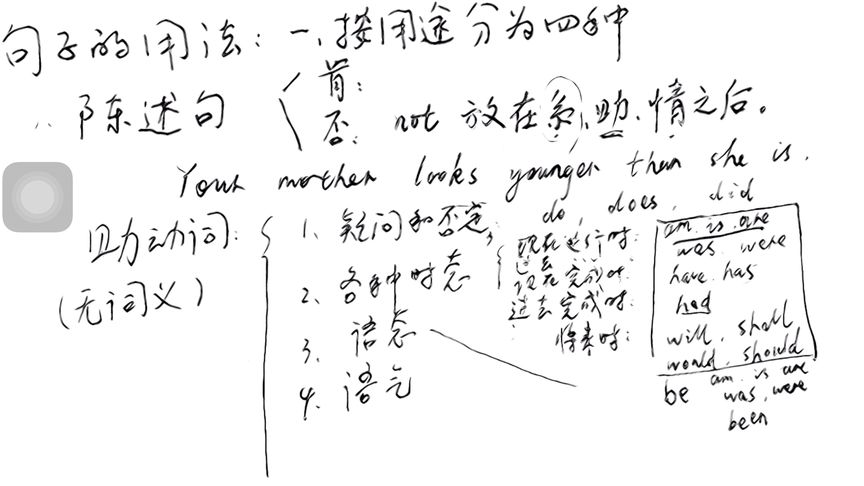 句子的用法：一、按用途分为四种
陈述句
肯：
否： not 放在系、助、情之后。
Your mother looks younger than she is.
助动词：
(无词义)
1、疑问和否定； do、does、did
2、各种时态
3、语态
4、语气
现在进行时： am is are
过去 was were
现在完成时： have has
过去完成时： had
将来时： will、shall
would、should
be am is are
was、were
been